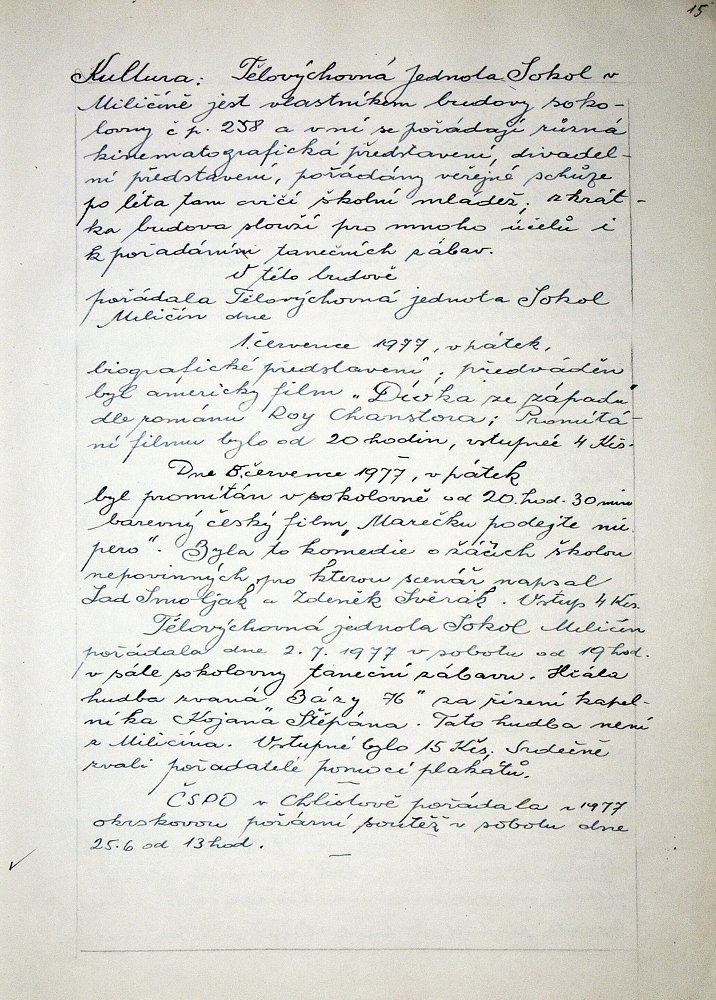 15
Kultura: Tělovýchovná jednota Sokol v
Miličíně jest vlastníkem budovy soko-
lovny č p. 258 a v ní se pořádají různá
kinematografická představení, divadel-
ní představení, pořádány veřejné schůze
po léta tam cvičí školní mládež; zkrát-
ka budova slouží pro mnoho účelů i
k pořádáním tanečních zábav.
V této budově
pořádala Tělovýchovná jednota Sokol
Miličín dne
1. července 1977, v pátek,
biografické představení; předváděn
byl americký film „Dívka ze západu"
dle románu Roy Chanstora; Promítá-
ní filmu bylo od 20 hodin, vstupnéé 4 Kčs.
Dne 8. července 1977, v pátek
byl promítán v sokolovně od 20. hod. 30 min
barevný český film „Marečku podejte mi
pero". Byla to komedie o žácích školou
nepovinných, pro kterou scenář napsal
Lad Smoljak a Zdeněk Svěrák. Vstup 4 Kčs.
Tělovýchovná jednota Sokol Miličín
pořádala dne 2. 7. 1977 v sobotu od 19 hod.
v sále sokolovny taneční zábavu. Hrála
hudba zvaná „Bázy 76" za řízení kapel-
níka Kojana Štěpána. Tato hudba není
z Miličína. Vstupné bylo 15 Kčs. Srdečně
zvali pořadatelé pomocí plakátů.
ČSPO v Chlístově pořádala r 1977
okrskovou požární soutěž v sobotu dne
25.6 od 13 hod.